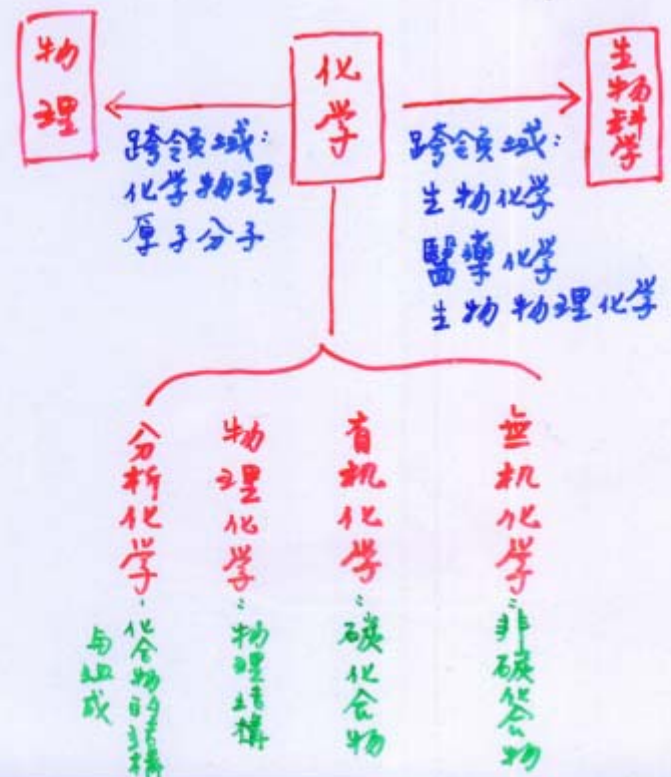 物理
化学
生物科学
跨領域:
化学物理
原子分子
跨領域:
生物化学
醫藥化学
生物物理化学
分析化学:化合物的結構
与組成
物理化学:物理結構
有机化学:碳化合物
無机化学:非碳化合物